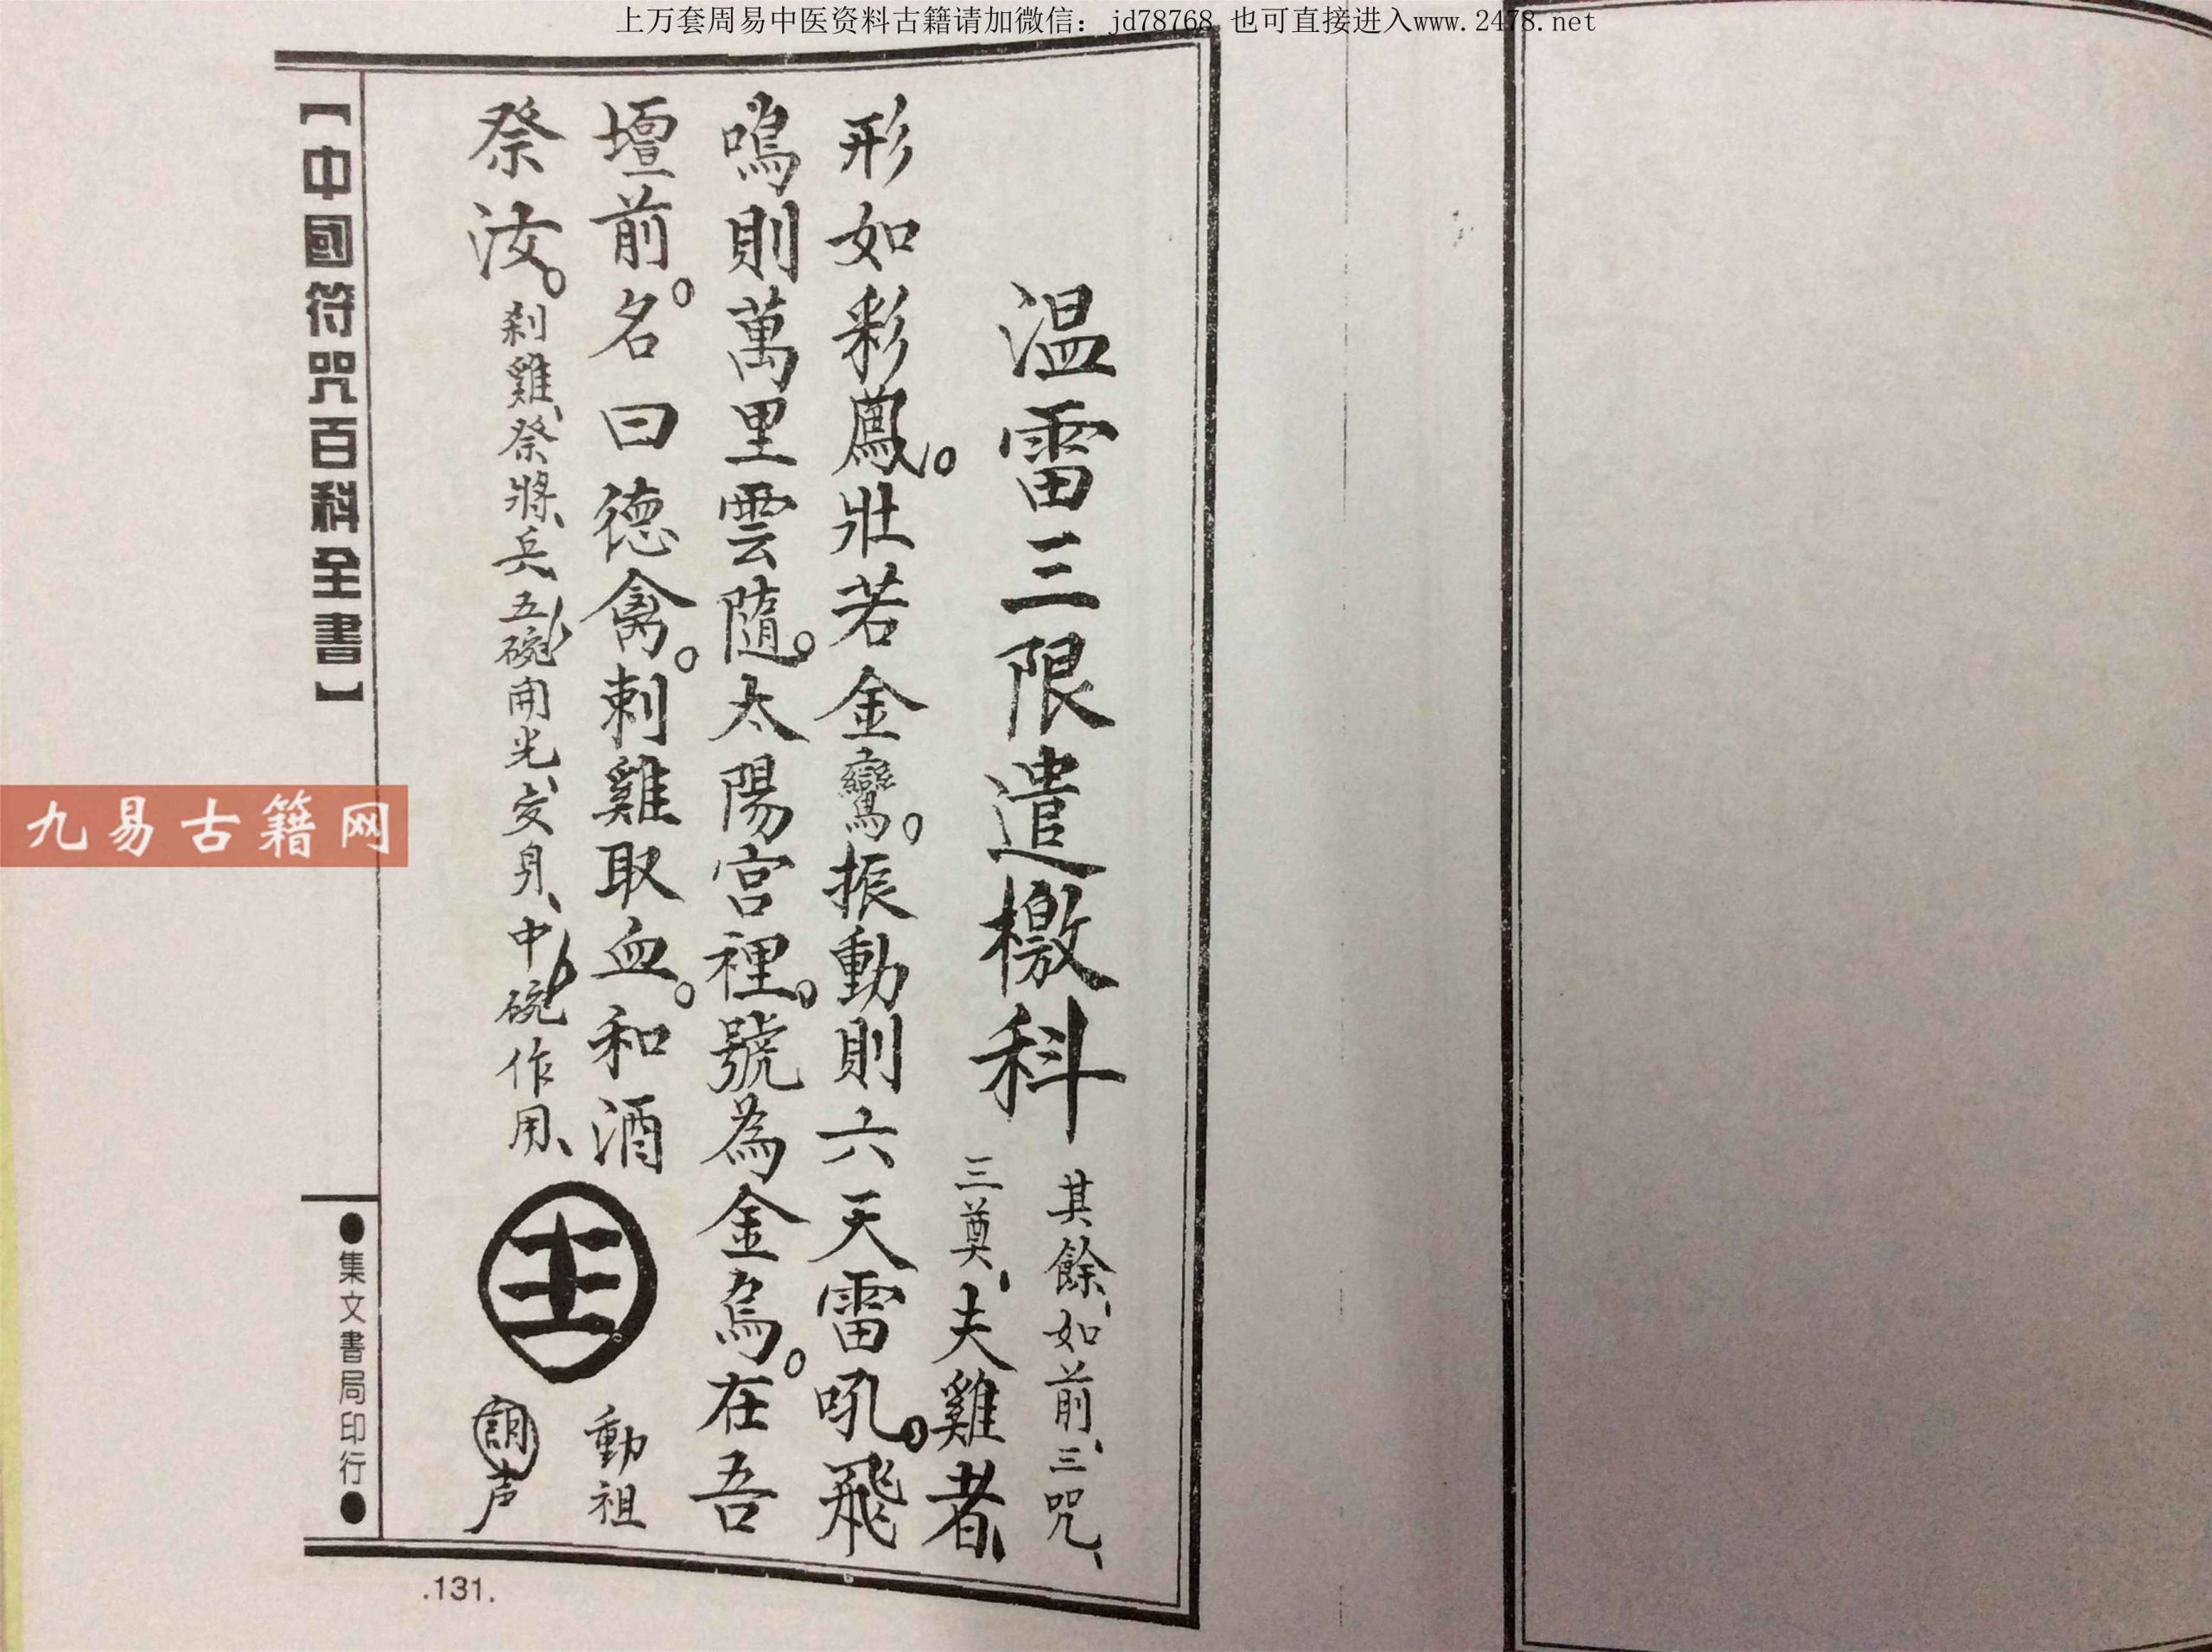 上万套周易中医资料古籍请加微信：jd78768 也可直接进入www.2478.net
温雷三限遣檄科
其餘、如前、三咒、
三奠、夫雞者
形如彩鳳。壯若金鸞。振動則六天雷吼。飛
鳴則萬里雲隨。太陽宮裡。號為金烏。在吾
壇前。名曰德禽。刺雞取血。和酒
動祖
祭汝。刹雞、祭將、兵、五碗開光、变身、中碗作用、
声
【中國符咒百科全書】
●集文書局印行●
.131.
九易古籍网